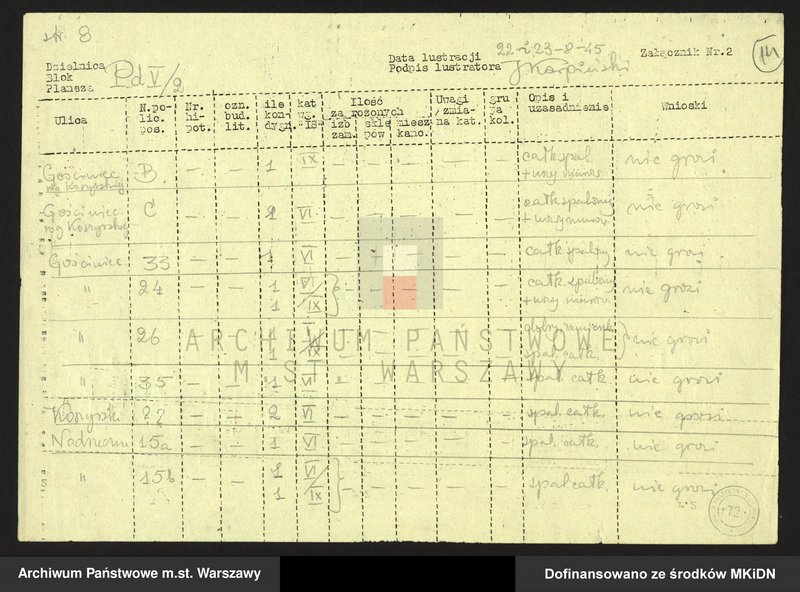 str. 8
Dzielnica
Blok
Plansza
Pd V/2
Data lustracji 22-i 23-8-45
Podpis lustratora JKarpiński
Załącznik Nr.2
14
Ulica
N.po-
lic.
pos.
Nr.
hi-
pot.
ozn.
bud.
lit.
ile
kon-
dygn.
kat
wg.
"IS"
Ilość
zagrożonych
izb
zam.
skle
pów
miesz
kanc.
Uwagi
/zmia-
na kat.
gru
pa
kol.
Opis i
uzasadnienie
Wnioski
Gościniec B - - 1 IX - - - - - całk. spal. nie grozi
róg Koszyckiej + wary murów
Gościniec C - - VI - - - - całk. spalony nie grozi
Gościniec 33 - - 1 VI - + - - - całk. spalony nie grozi
" 24 - - 1 VI - - - - - całk. spalony nie grozi
1 IX
" 26 - - 1 - - - - nie grozi
1 IX spal. całk.
" 35 - - 1 VI - - - - spal. całk nie grozi
?? - - 2 VI - - - - - - spal. całk. nie grozi
15a - - 1 VI - - - - - spal. całk. nie grozi
" 15b - - 1 VI - - - - - spal. całk. nie grozi
1 IX
72
ARCHIWUM PAŃSTWOWE
M.ST. WARSZAWY
Archiwum Państwowe m.st. Warszawy
Dofinansowano ze środków MKiDN